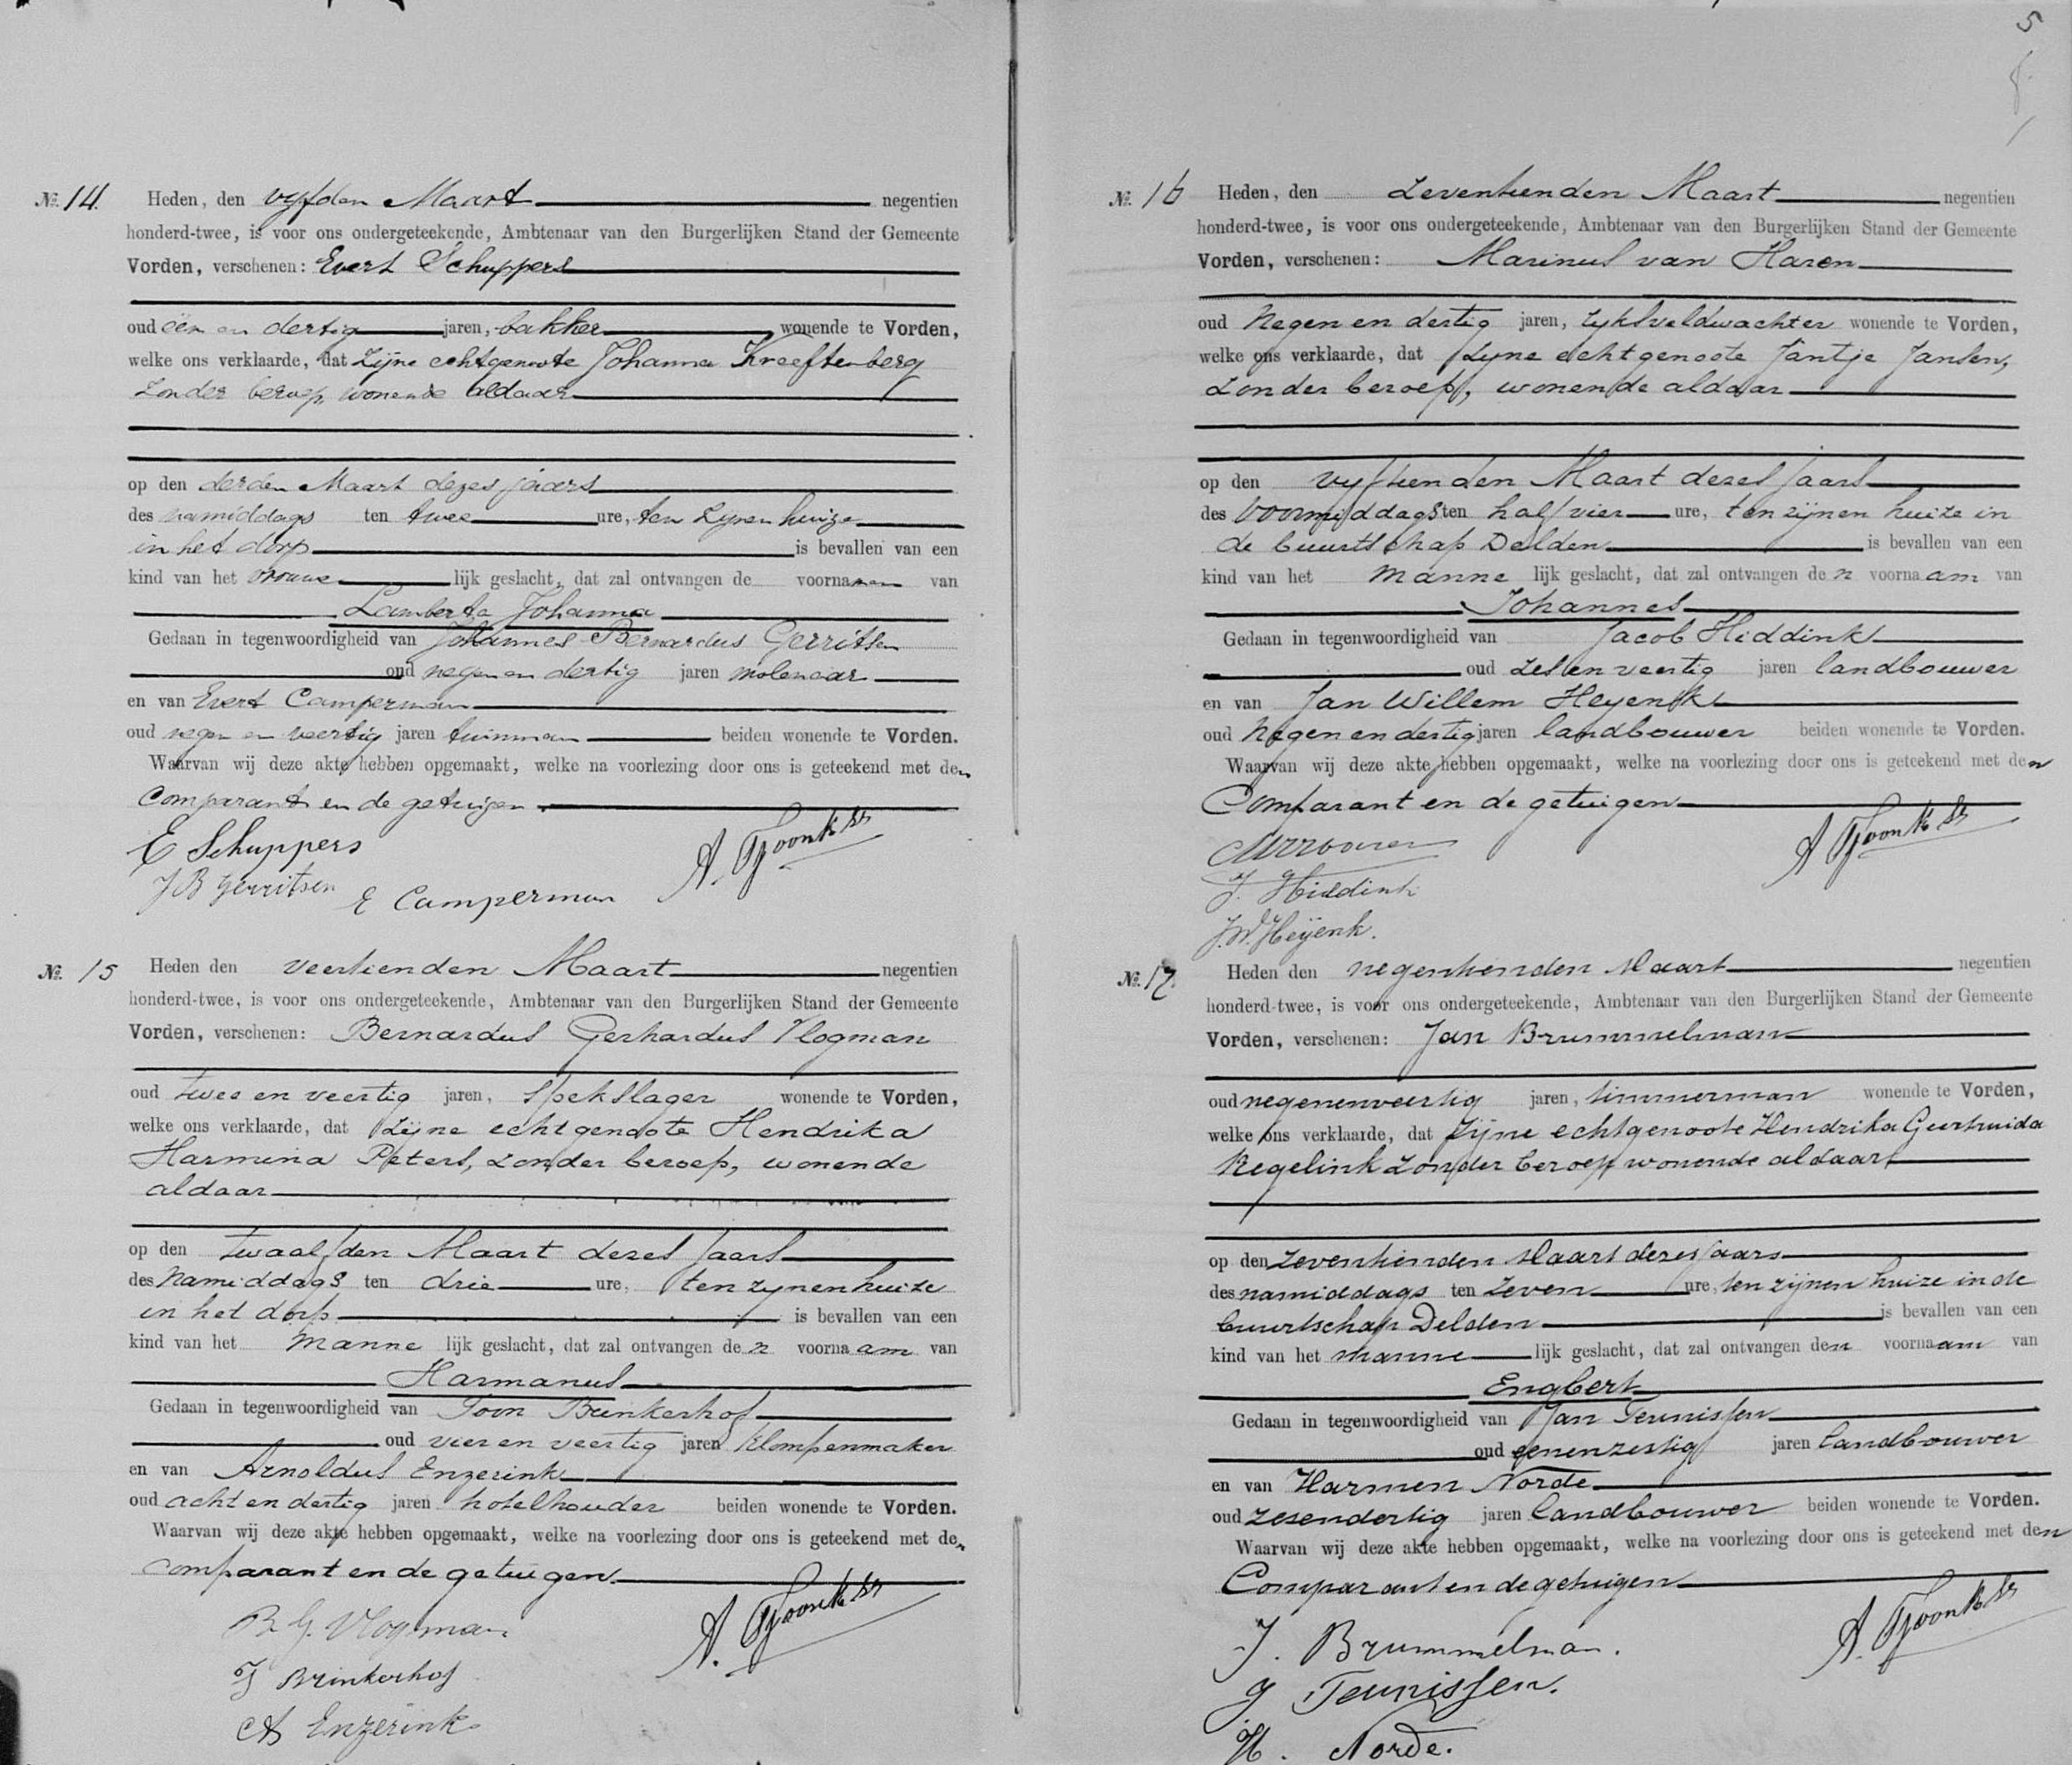 No. 14. Heden, den vijfden Maart negentien
honderd-twee, is voor ons ondergeteekende, Ambtenaar van den Burgerlijken Stand der Gemeente
Vorden, verschenen: Evert Schuppers
oud één en dertig jaren, bakker wonende te Vorden,
welke ons verklaarde, dat zijne echtgenoote Johanna Kreeftenberg
zonder beroep, wonende aldaar
op den derden Maart dezes jaars
des namiddags ten twee ure, ten zijnen huize
in het dorp is bevallen van een
kind van het vrouwe lijk geslacht, dat zal ontvangen de voornamen van
Lamberta Johanna
Gedaan in tegenwoordigheid van Johannes Bernardus Gerritsen
oud negen en dertig jaren molenaar
en van Evert Camperman
oud negen en veertig jaren tuinman beiden wonende te Vorden.
Waarvan wij deze akte hebben opgemaakt, welke na voorlezing door ons is geteekend met den
comparant en de getuigen.
E Schuppers
J B Gerritsen E Camperman
No. 15 Heden den veertienden Maart negentien
honderd-twee, is voor ons ondergeteekende, Ambtenaar van den Burgerlijken Stand der Gemeente
Vorden, verschenen: Bernardus Gerhardus Vlogman
oud twee en veertig jaren, spekslager wonende te Vorden,
welke ons verklaarde, dat zijne echtgenoote Hendrika
Harmina Peters, zonder beroep, wonende
aldaar
op den twaalfden Maart dezes jaars
des namiddags ten drie ure, ten zijnen huize
in het dorp is bevallen van een
kind van het manne lijk geslacht, dat zal ontvangen den voornaam van
Harmanus
Gedaan in tegenwoordigheid van Toon Brinkerhof
oud vier en veertig jaren klompenmaker
en van Arnoldus Enzerink
oud acht en dertig jaren hotelhouder beiden wonende te Vorden.
Waarvan wij deze akte hebben opgemaakt, welke na voorlezing door ons is geteekend met den
comparant en de getuigen.
B. G. Vlogman
T Brinkerhof
A Enzerink
5
No. 16 Heden, den zeventienden Maart negentien
honderd-twee, is voor ons ondergeteekende, Ambtenaar van den Burgerlijken Stand der Gemeente
Vorden, verschenen: Marinus van Haren
oud negen en dertig jaren, rijksveldwachter wonende te Vorden,
welke ons verklaarde, dat zijne echtgenoote Jantje Jansen,
zonder beroep, wonende aldaar
op den vijftienden Maart dezes jaars
des voormiddags ten half vier ure, ten zijnen huize in
de buurtschap Delden is bevallen van een
kind van het manne lijk geslacht, dat zal ontvangen den voornaam van
Johannes
Gedaan in tegenwoordigheid van Jacob Hiddink
oud zes en veertig jaren landbouwer
en van Jan Willem Heyenk
oud negen en dertig jaren landbouwer beiden wonende te Vorden.
Waarvan wij deze akte hebben opgemaakt, welke na voorlezing door ons is geteekend met den
Comparant en de getuigen
J. Hiddink
J.W. Heÿenk.
No. 17. Heden den negentienden Maart negentien
honderd-twee, is voor ons ondergeteekende, Ambtenaar van den Burgerlijken Stand der Gemeente
Vorden, verschenen: Jan Brummelman
oud negenenveertig jaren, timmerman wonende te Vorden,
welke ons verklaarde, dat zijne echtgenoote Hendrika Geertruida
Regelink zonder beroep wonende aldaar
op den zeventienden Maart dezes jaars
des namiddags ten zeven ure, ten zijnen huize in de
buurtschap Delden is bevallen van een
kind van het manne lijk geslacht, dat zal ontvangen den voornaam van
Engbert
Gedaan in tegenwoordigheid van Jan Teunissen
oud eenenzestig jaren landbouwer
en van Harmen Norde
oud zesendertig jaren landbouwer beiden wonende te Vorden.
Waarvan wij deze akte hebben opgemaakt, welke na voorlezing door ons is geteekend met den
Comparant en de getuigen
J. Brummelman.
J Teunissen.
H. Norde.